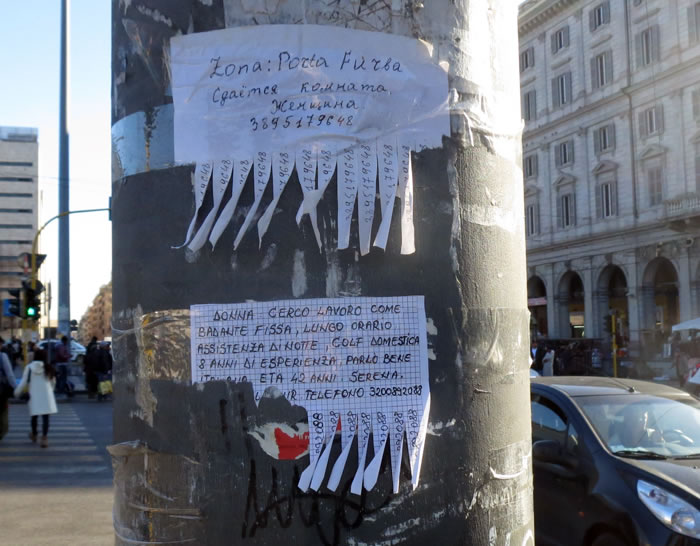 Zona: Porta Furba
Сдаётся комната
Женщина
3895179648
DONNA CERCO LAVORO COME
BADANTE FISSA, LUNGO ORARIO
ASSISTENZA DI NOTTE, COLF DOMESTICA
8 ANNI DI ESPERIENZA, PARLO BENE
ETA 42 ANNI SERENA.
TELEFONO 3200892088